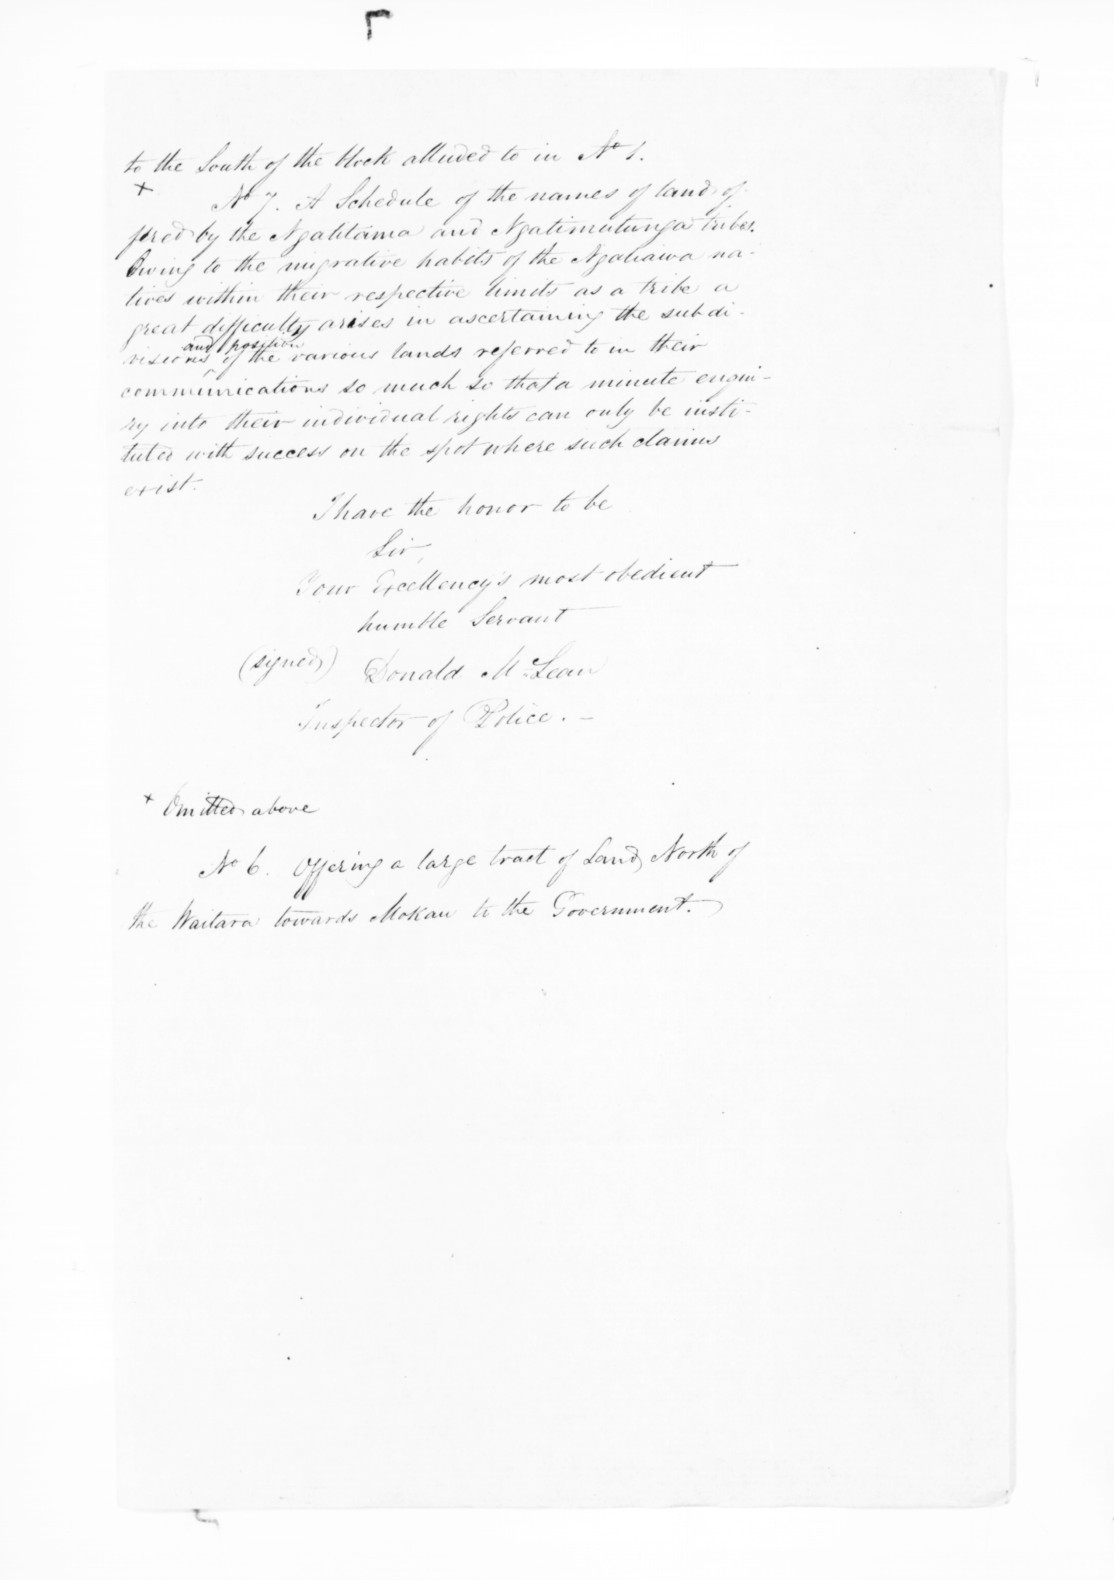 to the South of the block alluded to in No 1.
x No 7. A Schedule of the names of land of-
fered by the Ngatitama and Ngatimutunga tribes.
Owing to the migrative habits of the Ngatiawa na-
tives within their respective limits as a tribe a
great difficulty arises in ascertaining the subdi-
and position
visions ^ of the various lands referred to in their
communications so much so that a minute enqui-
ry into their individual rights can only be insti-
tuted with success on the spot where such claims
exist.
I have the honor to be
Sir,
Your Excellency's most obedient
humble Servant
(signed) Donald McLean
Inspector of Police. -
x Omitted above
No 6. Offering a large tract of Land North of
the Waitara towards Mokau to the Government.